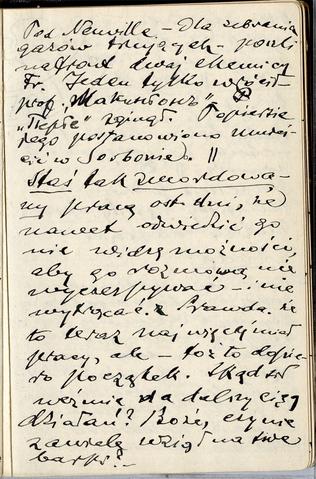 Pod Neuville. – Dla zebrania
gazów trujących – poszli
na front dwaj chemicy
Fr. Jeden tylko wrócił –
prof.
zginął. Popiersie
jego postanowiono umieś-
cić w Sorbonie). ||
Staś tak zmordowa-
ny pracą ost. dni, że
nawet odwiedzić go
nie widzę możności,
aby go rozmową nie
wyczerpywać – i nie
wytrącać. Prawda, że
to teraz najwięcej miał
pracy, ale – toż to dopie-
ro początek. Skąd sił
weźmie dla dalszych
działań? Boże, czy nie
zawiele wziął na swe
barki? –